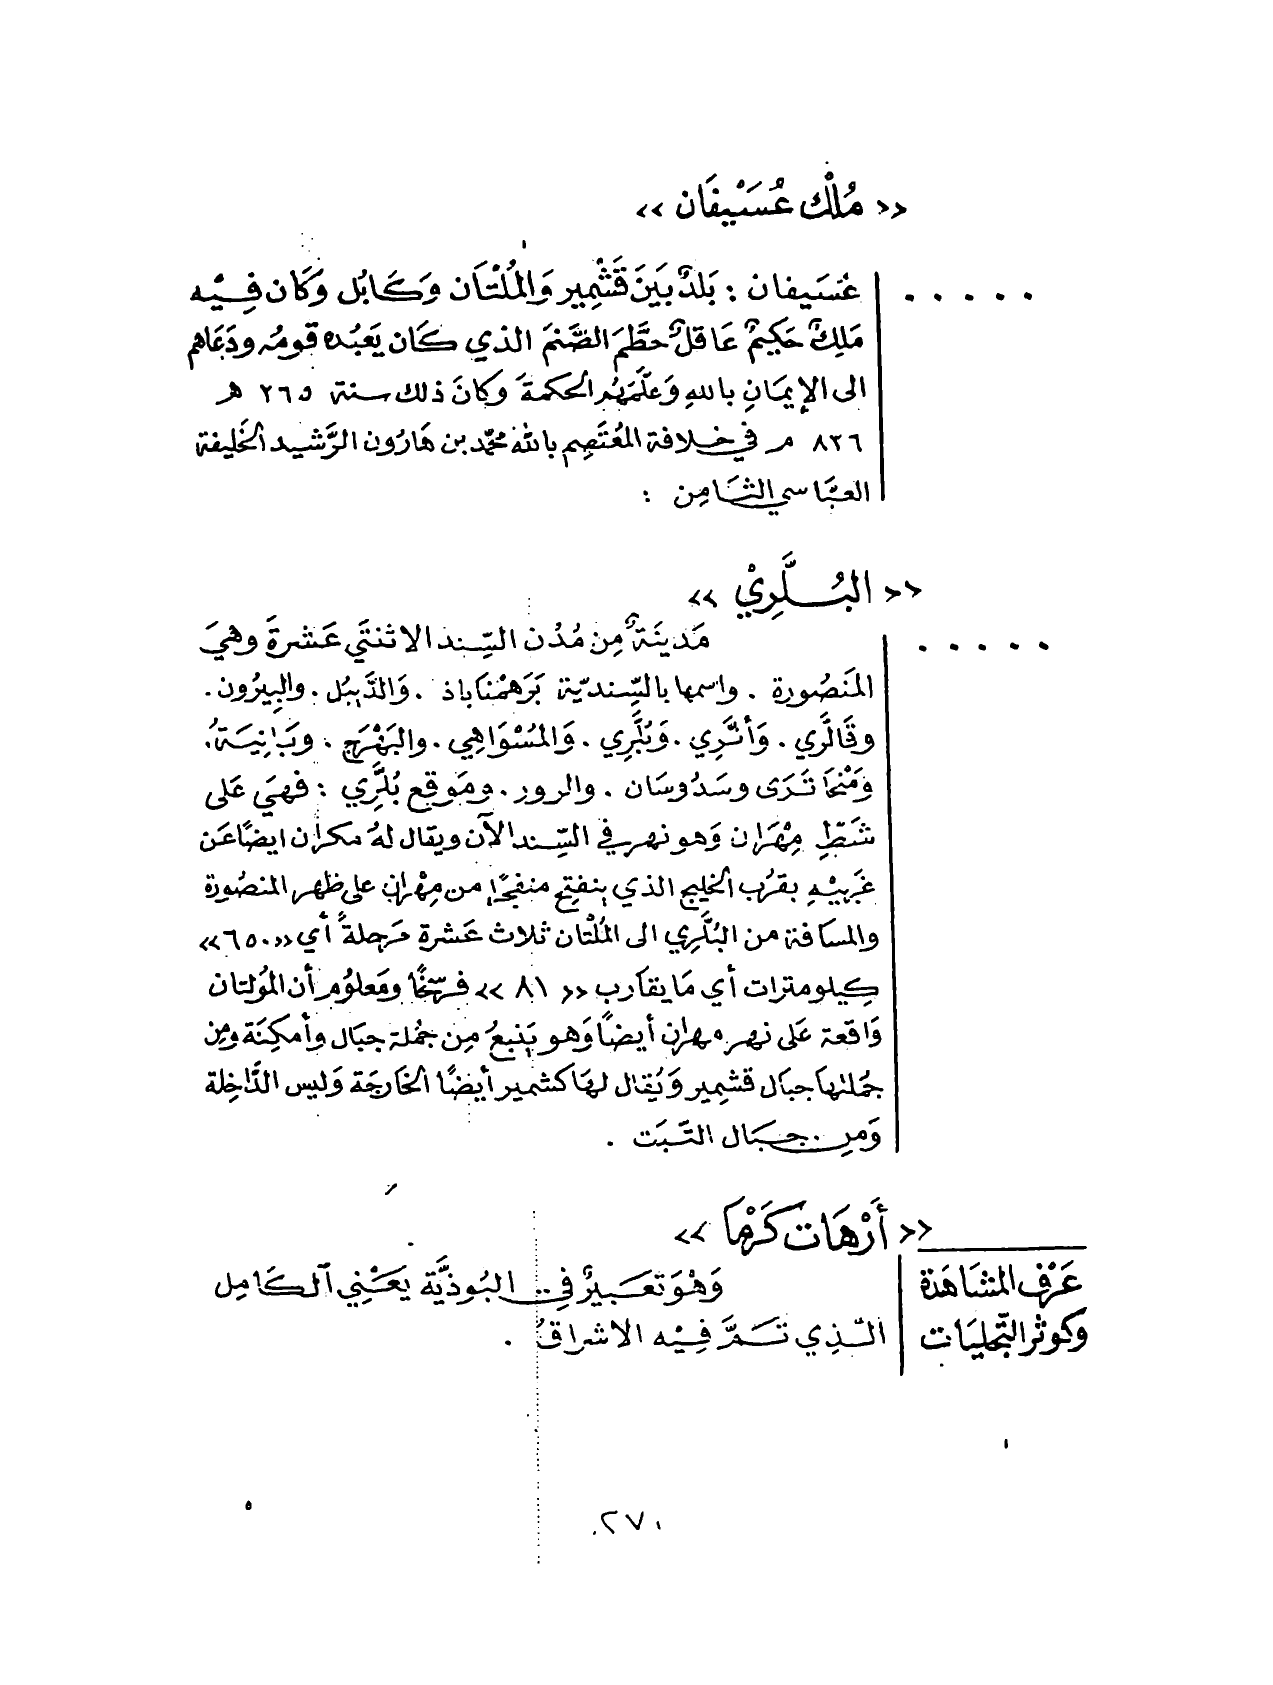 « مُلْك عُسَيْفَان »
عُسَيفان : بَلدٌ بَينَ قَشْمِير وَالمُلْتَان وَكَابُل وَكَان فِيْه
مَلِكٌ حَكِيمٌ عَاقلٌ حطَّمَ الصَّنمَ الذي كَان يَعبُده قومُه ودَعَاهم
الى الإيمَانِ بالله وَعلّمَهُم الحكمةَ وكانَ ذلك سنة ٢٦٥ هـ
٨٢٦ م في خلافة المُعتَصِم بالله محمّد بن هَارُون الرَّشيد الخَليفة
العبَّاسي الثَّامِن :
« البُـلَّرِيْ »
مَدينَةٌ مِن مُدُن السِّند الاثنتَي عَشرةَ وهيَ
المَنصُورة . واسمها بالسِّنديّة بَرَهمْنَاباذ . وَالدَّيبُل . والبِيرُون .
وقَالَّري . وَأتَّرِي . وَبُلَّرِي . وَالمُسْوَاهِي . والبَهْرَج . وبَانِيَةُ .
وَمَنْحَاتَرَى وسَدُوسَان . والرور . ومَوقع بُلَّرِي : فهيَ عَلى
شَطِّ مِهْرَان وَهو نهر في السِّند الآن ويقال لهُ مكران ايضًا عَن
غَربيْهِ بقرُب الخليج الذي ينفتِح منفجرًا من مِهْران على ظهر المنصُورة
والمسافة من البُلَّري الى المُلْتان ثلاث عَشرة مَرحلةً أي «٦٥٠»
كِيلومترات أي مَا يقَارب « ٨١ » فرسَخًا ومَعلوُم أن المُولتان
وَاقعة عَلى نهر مهران أيضًا وَهو يَنبعُ مِن جمُلة جبَال وأمكِنَة ومِن
جمُلتها جبَال قشمِير وَيُقال لهَا كشمير أيضًا الخَارجَة وَليس الدَّاخِلة
وَمِن جبَال التَّبَت .
« أَرْهَات كَرْمَا »
عَرْف المشَاهَدة
وكوثر التّجليَات
وَهْوَ تعَبيرٌ في البُوذيَّة يَعَنْيِ الكَامِل
الَّذِي تَمَّ فِيْه الاشراقُ .
٢٧٠